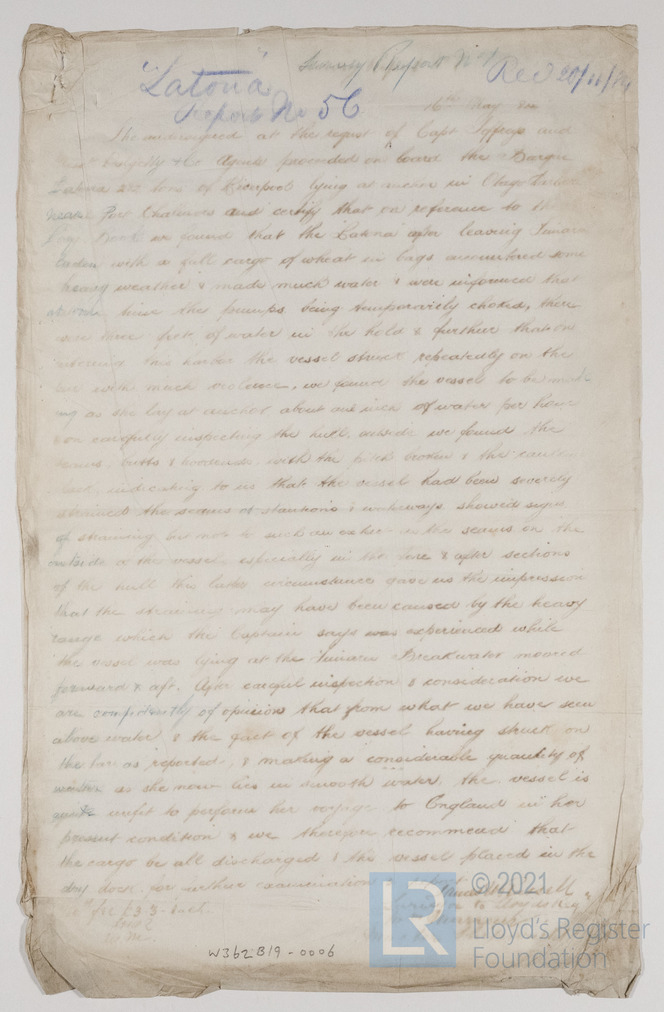 "Latona"
Report No 56
Survey Report No 1
Rec'd 20/11/84
16th May
The undersigned at the request of Capt Jeffreys and
Agents proceeded on board the Barque
Latona tons of Liverpool lying at anchor in Otago Harbour
near Port Chalmers and certify that on reference to the
Log Book we found that the Latona after leaving Timaru
laden with a full cargo of wheat in bags encountered some
heavy weather & made much water & were informed that
at one time the pumps being temporarily choked, there
were three feet of water in the hold & further that on
entering this harbor the vessel struck repeatedly on the
bar with much violence, we found the vessel to be mak-
ing as she lay at anchor about one inch of water per hour
& on carefully inspecting the hull outside we found the
seams, butts & hoodends, with the pitch broken & the caulking
slack, indicating to us that the vessel had been severely
strained the seams of stantions & waterways showed signs
of straining but not to such an extent as the seams on the
outside of the vessel, especially in the fore & after sections
of the hull this latter circumstance gave us the impression
that the straining may have been caused by the heavy
range which the Captain says was experienced while
the vessel was lying at the Timaru Breakwater moored
forward & aft. After careful inspection & consideration we
are confidently of opinion that from what we have seen
above water & the fact of the vessel having struck on
the bar as reported, & making a considerable quantity of
water as she now lies in smooth water, the vessel is
quite unfit to perform her voyage to England in her
present condition & we therefore recommend that
the cargo be all discharged & the vessel placed in the
dry dock for further examination
fee £3-3-
Surveyor to Lloyds Reg
W362B19-0006
LR
© 2021
Lloyd's Register
Foundation